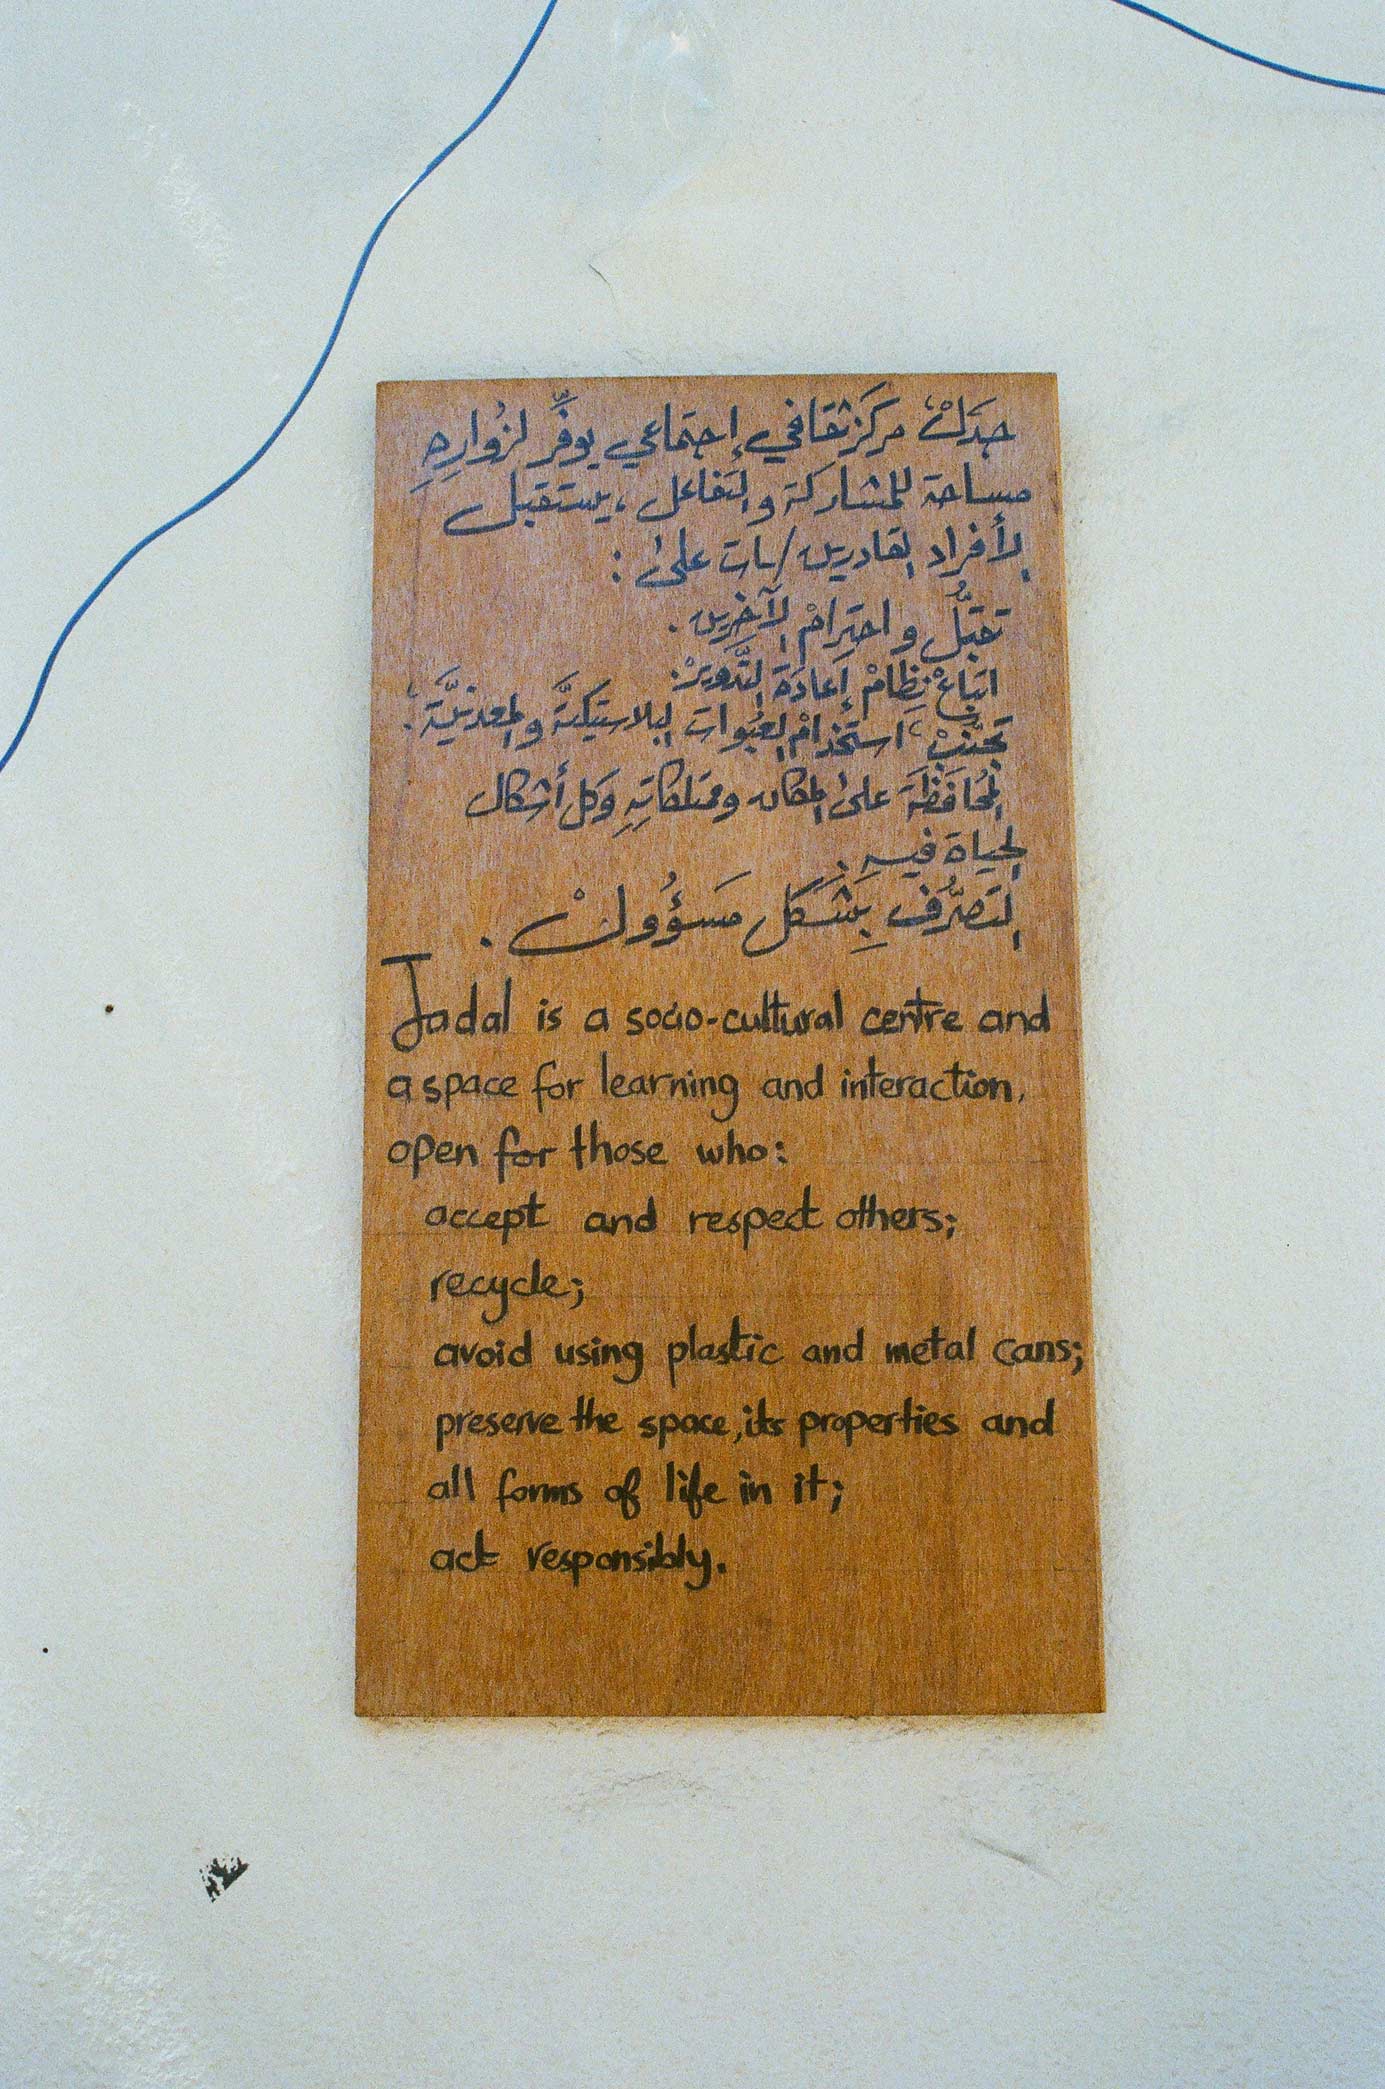 جدَلْ مركَز ثقافي إجتماعي يوفِّر لزُوارِهِ
مساحة للمشاركة والتفاعل، يستقبل
الأفراد القادرين/ات على:
تقبُّل و احتِرامْ الآخرين.
اتباعْ نِظامْ إعادَة التَّدويرْ.
تجنّبْ استخدامْ العبُوات البلاستيكيَّة والمعدنيَّة.
المُحافَظَة على المكان وممتلكاتِهِ وَكل أشكال
الحياة فيه.
التصرُّف بِشَكل مَسؤُولْ.
Jadal is a socio-cultural centre and
a space for learning and interaction,
open for those who:
accept and respect others;
recycle;
avoid using plastic and metal cans;
preserve the space, its properties and
all forms of life in it;
act responsibly.